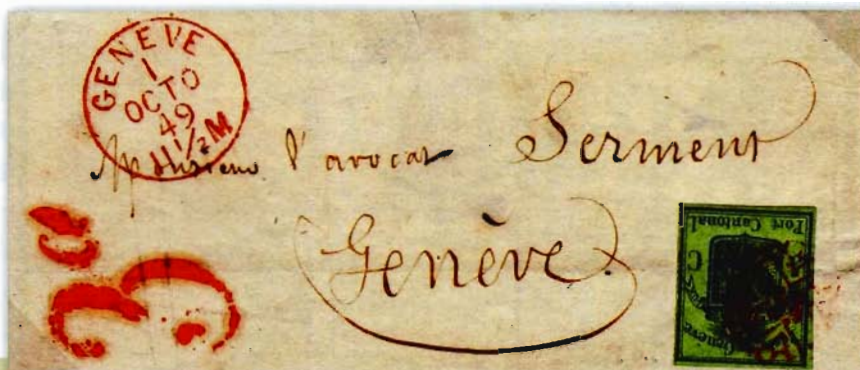 GENEVE
1
OCTO
49
11½M
Monsieur l'avocat Serment
Genève.
Port Cantonal
C